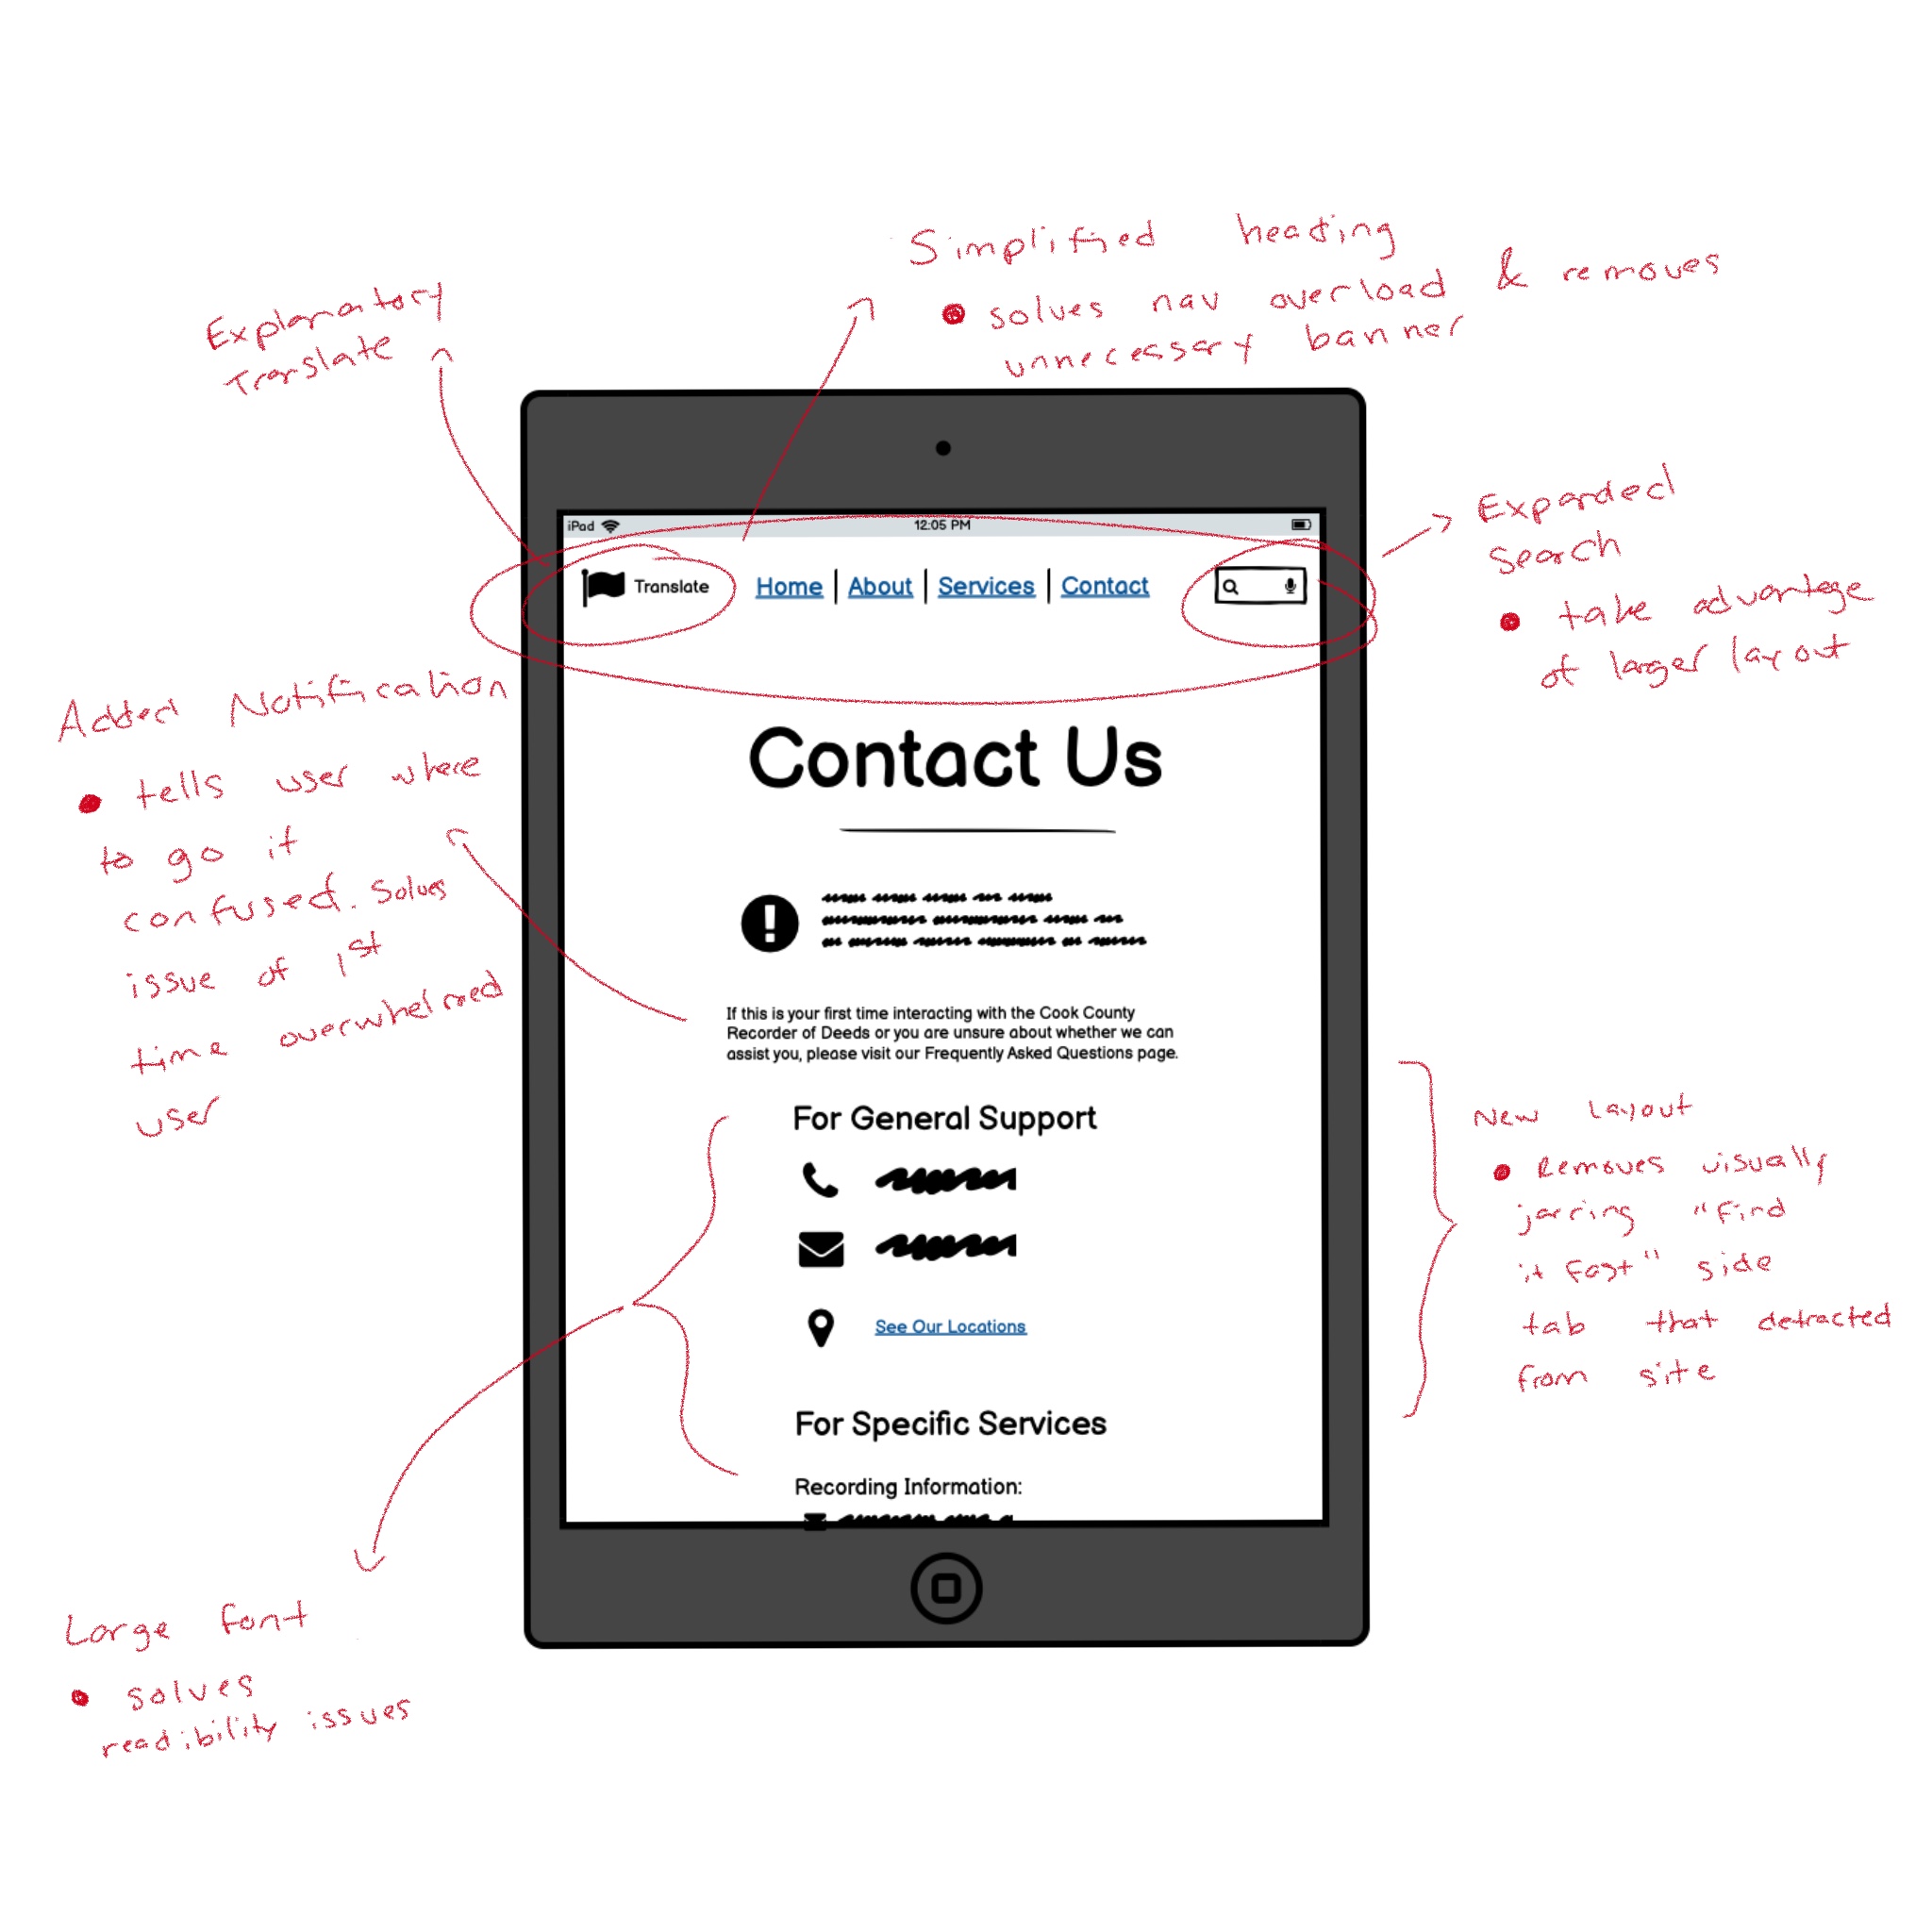 Simplified heading
solves nav overload & removes
unnecessary banner
Explanatory
Translate
Expanded
Search
take advantage
of larger layout
iPad
12:05 PM
Translate
Home | About | Services | Contact
Added Notification
tells user where
to go if
confused. Solves
issue of 1st
time overwhelmed
user
Contact Us
If this is your first time interacting with the Cook County
Recorder of Deeds or you are unsure about whether we can
assist you, please visit our Frequently Asked Questions page.
For General Support
See Our Locations
For Specific Services
Recording Information:
New layout
Removes visually
jarring "find
it fast" side
tab that detracted
from site
Large font
solves
readibility issues